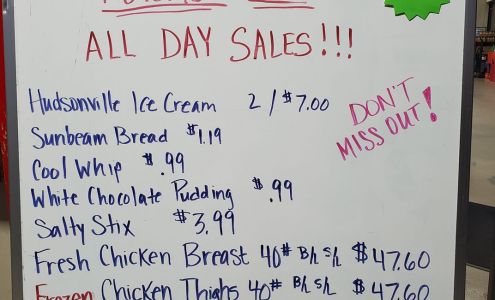 ALL DAY SALES!!!
Hudsonville Ice Cream 2/$7.00
Sunbeam Bread $1.19
Cool Whip $.99
White Chocolate Pudding $.99
Salty Stix $3.99
Fresh Chicken Breast 40# Bh Sh $47.60
Frozen Chicken Thighs 40# Bh Sh $47.60
DON'T
MISS OUT!